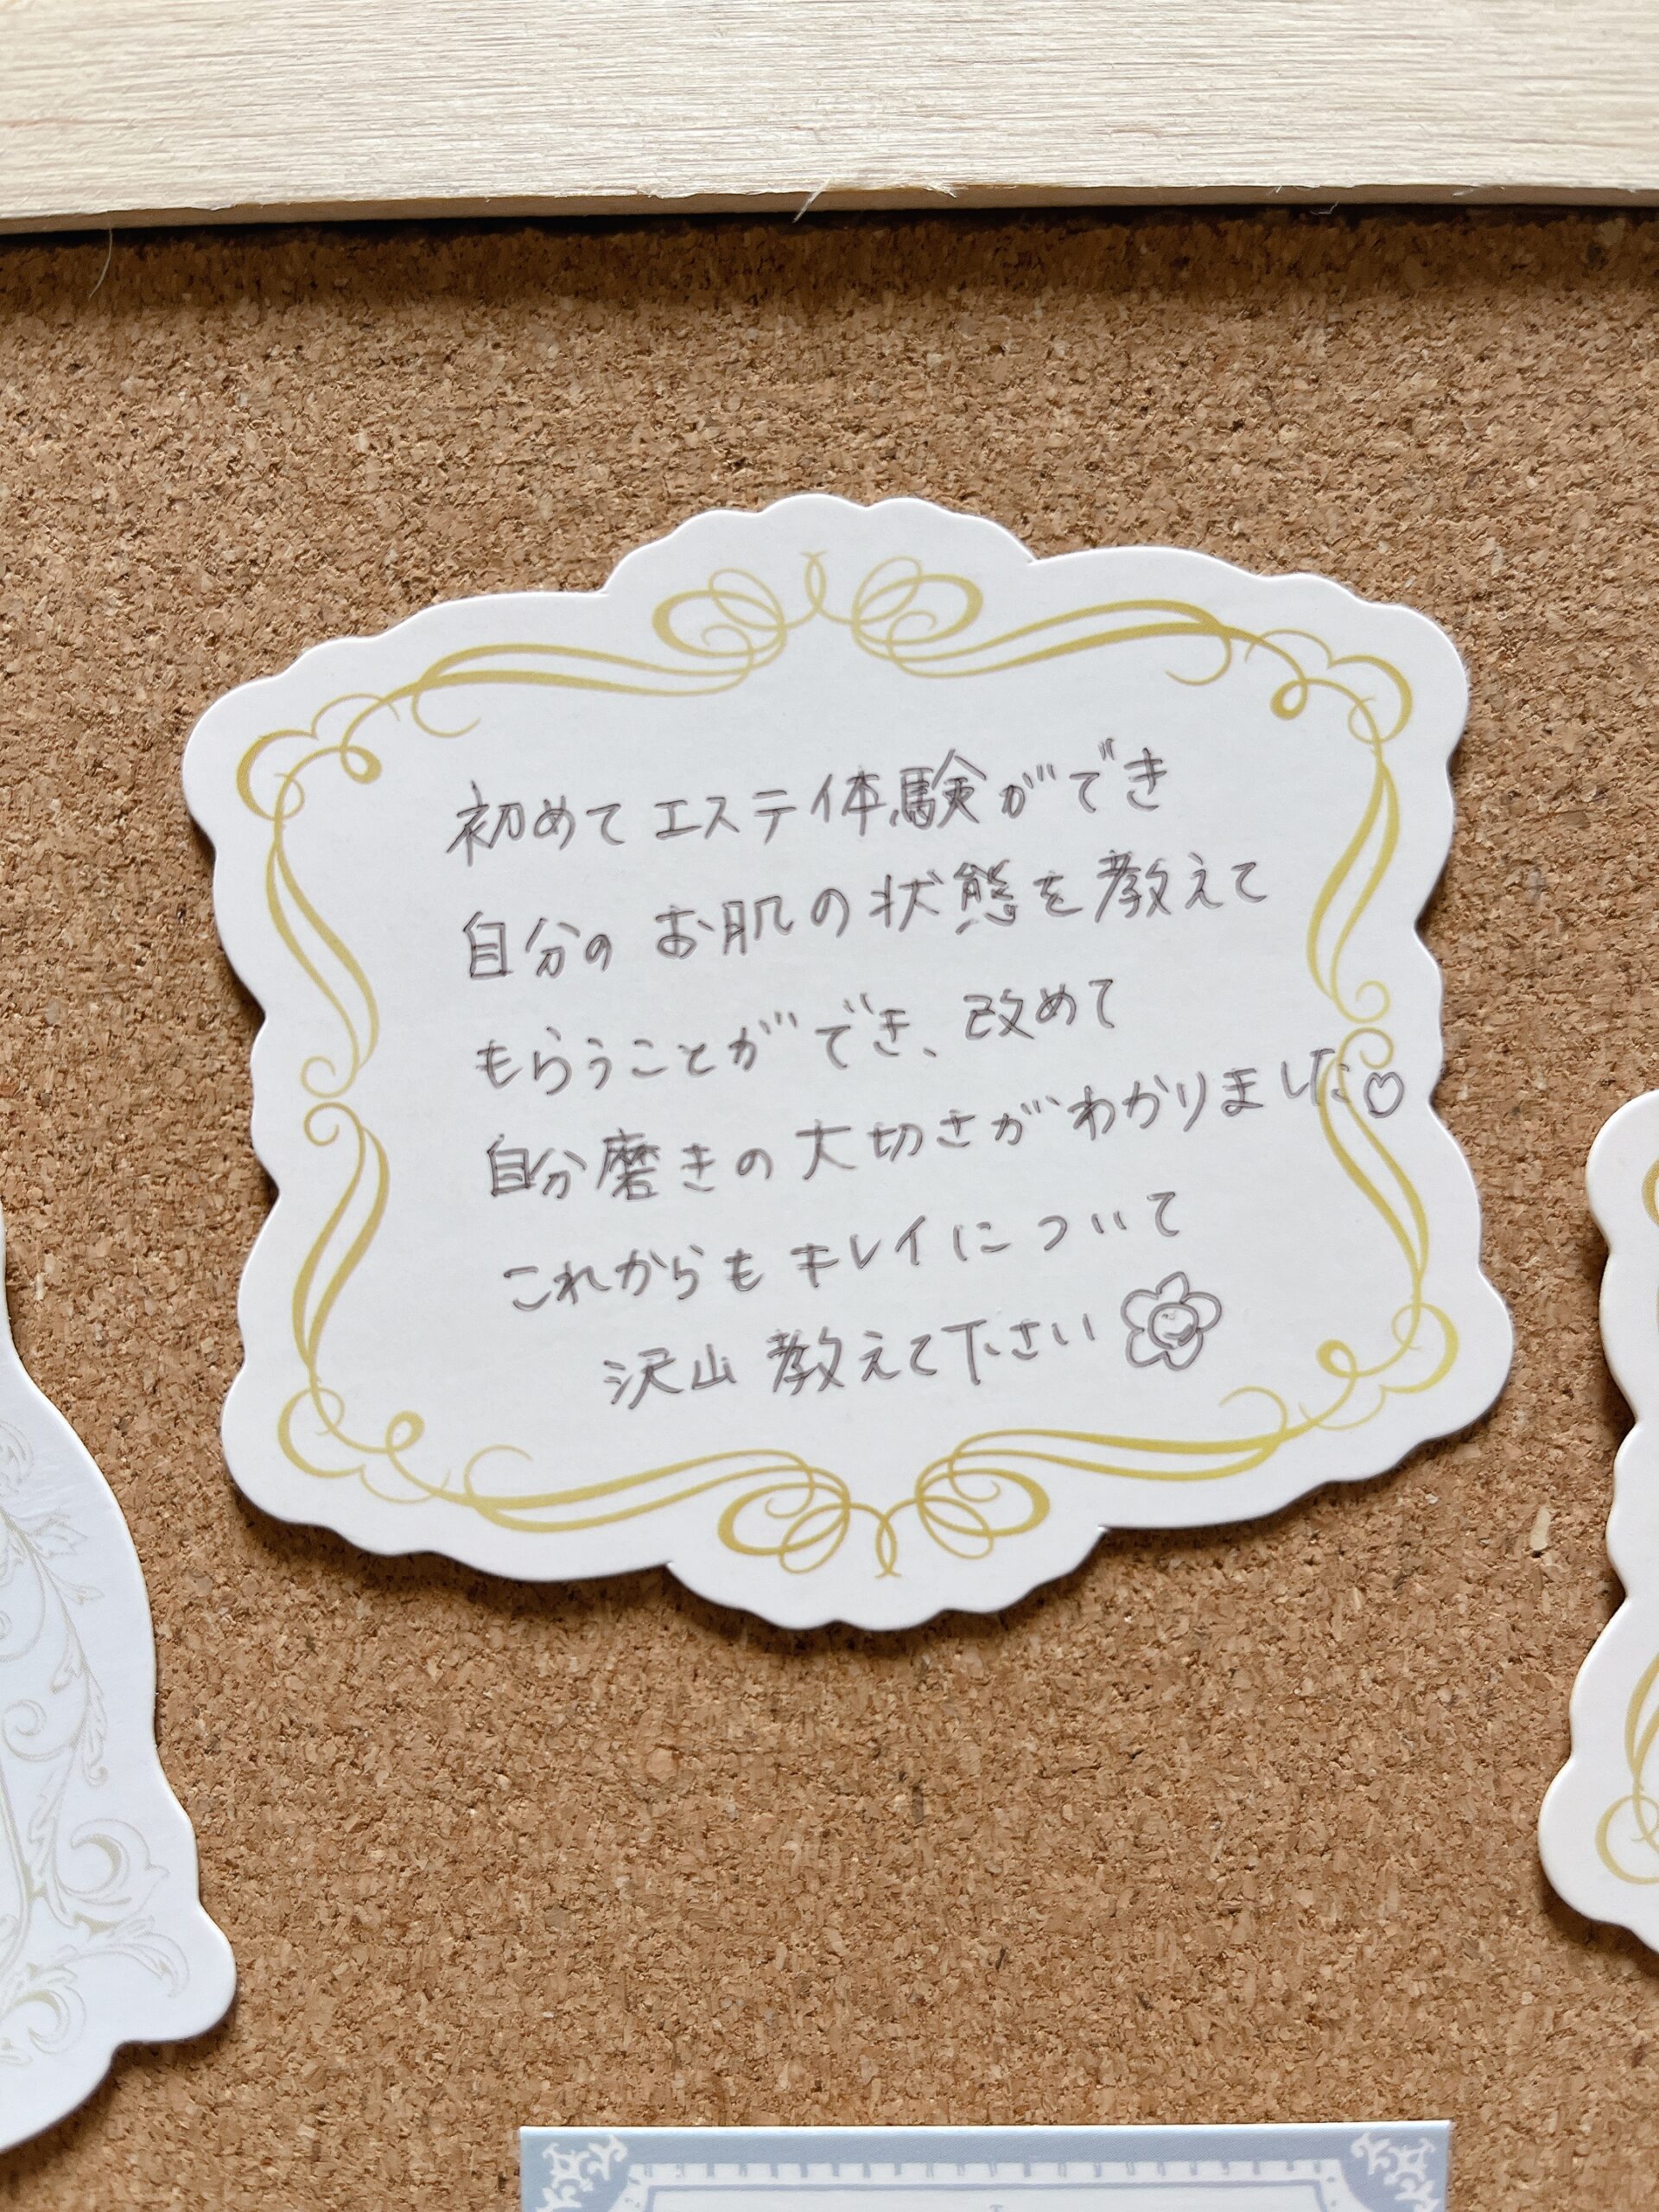 初めてエステ体験ができ
自分のお肌の状態を教えて
もらうことができ、改めて
自分磨きの大切さがわかりました♡
これからもキレイについて
沢山教えて下さい